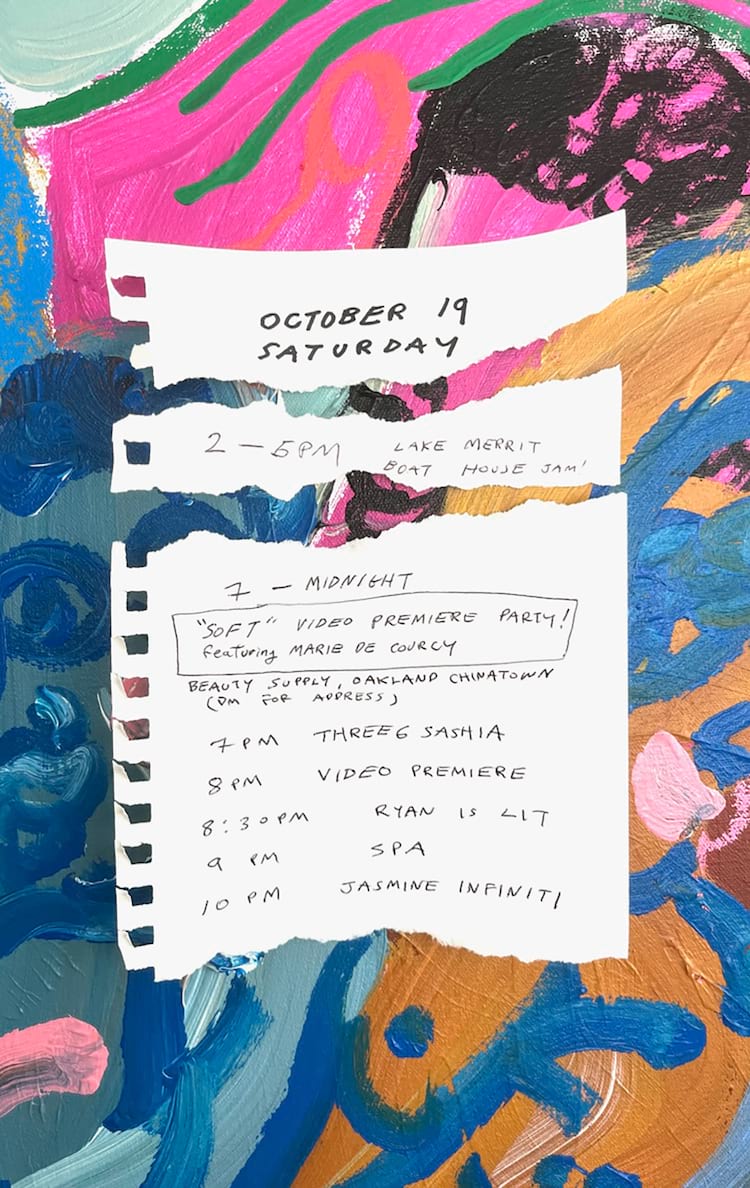 OCTOBER 19
SATURDAY
2 – 5PM LAKE MERRIT
BOAT HOUSE JAM!
7 – MIDNIGHT
"SOFT" VIDEO PREMIERE PARTY!
featuring MARIE DE COURCY
BEAUTY SUPPLY, OAKLAND CHINATOWN
(DM FOR ADDRESS)
7PM THREE6 SASHIA
8PM VIDEO PREMIERE
8:30PM RYAN IS LIT
9 PM SPA
10 PM JASMINE INFINITI